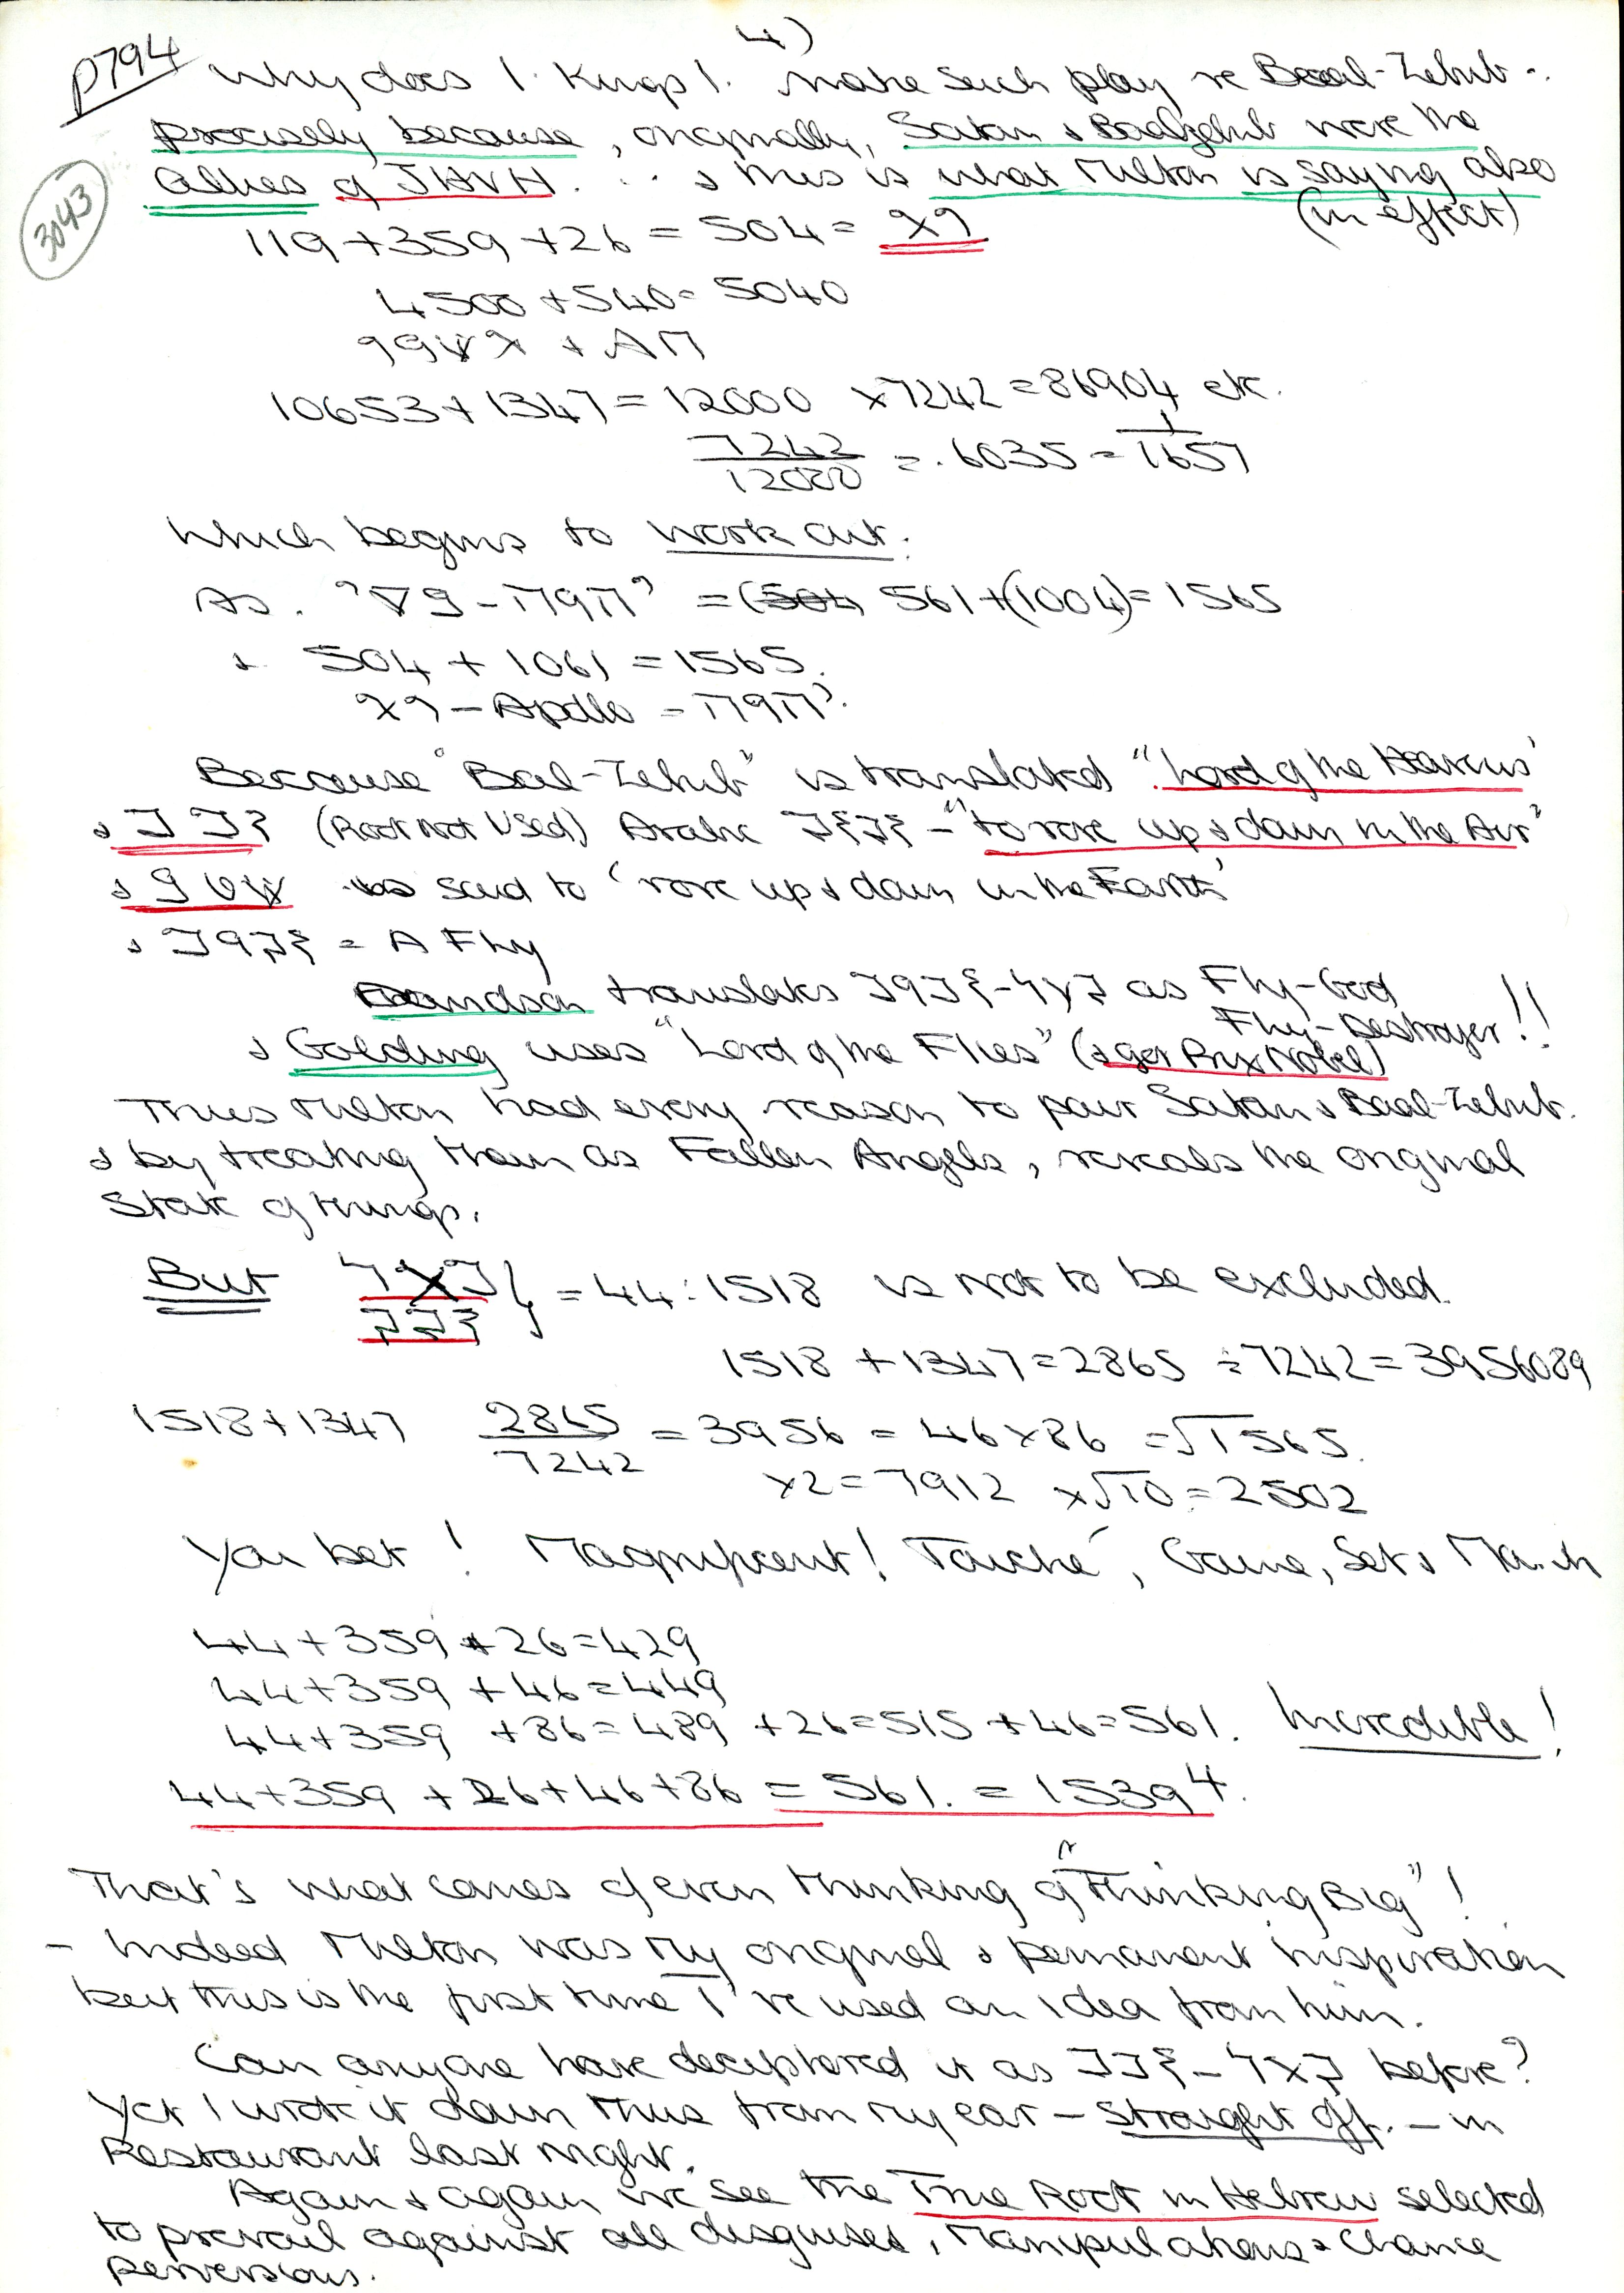 4)
P794 Why does 1. Kings 1. make such play re Beeal-Zebub -.
precisely because, originally, Satan & Baalzebub were the
allies of JHVH. . . . & this is what Milton is saying also
(in effect)
3043
119 + 359 + 26 = 504 =
4500 + 540 = 5040
10653 + 1347 = 12000 x7242 = 86904 etc.
7242/12000 = .6035 = 1/1657
Which begins to work out.
As. = 561 + (1004) = 1565
& 504 + 1061 = 1565.
- Apollo -
Because "Baal-Zebub" is translated "Lord of the Heavens"
& (Root Not Used) Arabic - "to rove up & down in the Air"
& said to 'rove up & down in the Earth'
& = A Fly
translates as Fly-God
Fly-Destroyer!!
& Golding uses "Lord of the Flies" (& get Prix Nobel)
Thus Milton had every reason to pair Satan & Baal-Zebub.
& by treating them as Fallen Angels, reveals the original
State of things.
But = 44 : 1518 is not to be excluded.
1518 + 1347 = 2865 ÷ 7242 = 3956089
1518 + 1347 2865/7242 = 3956 = 46 x 86 = √1565.
x2 = 7912 x√10 = 2502
You bet! Magnificent! Touché, Game, Set &
44 + 359 + 26 = 429
44 + 359 + 46 = 449
44 + 359 + 86 = 489 + 26 = 515 + 46 = 561. Incredible!
44 + 359 + 26 + 46 + 86 = 561. = 1539⁴.
That's what comes of even thinking of "Thinking Big"!
- Indeed Milton was my original & permanent inspiration
but this is the first time I've used an idea from him.
Can anyone have deciphered it as before?
Yet I wrote it down thus from my ear - straight off. - in
Restaurant last night.
Again & again we see the True Root in Hebrew selected
to prevail against all disguises, Manipulations & Chance
perversions.